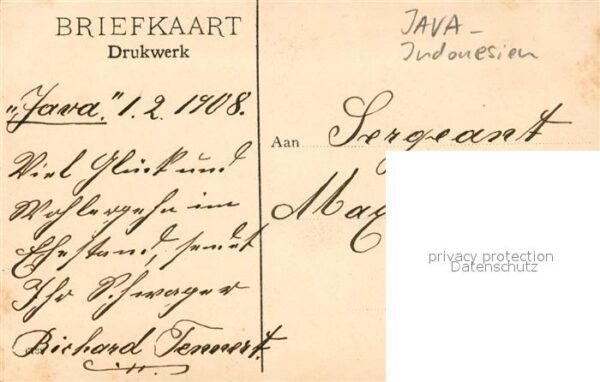 BRIEFKAART
Drukwerk
„Java." 1.2.1908.
Viel Glück und
Wohlergehn im
Ehestand, sendet
Ihr Schwager
Richard Tennert.
JAVA -
Indonesien
Aan Sergeant
Max
privacy protection
Datenschutz